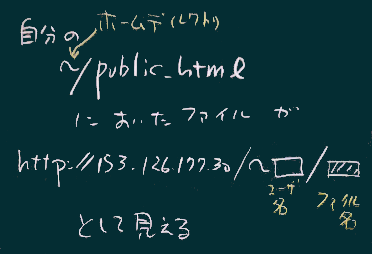 自分の ホームディレクトリ
~/public_html
に おいた ファイル が
http://153.126.177.30/~□/□
ユーザ名 ファイル名
として見える